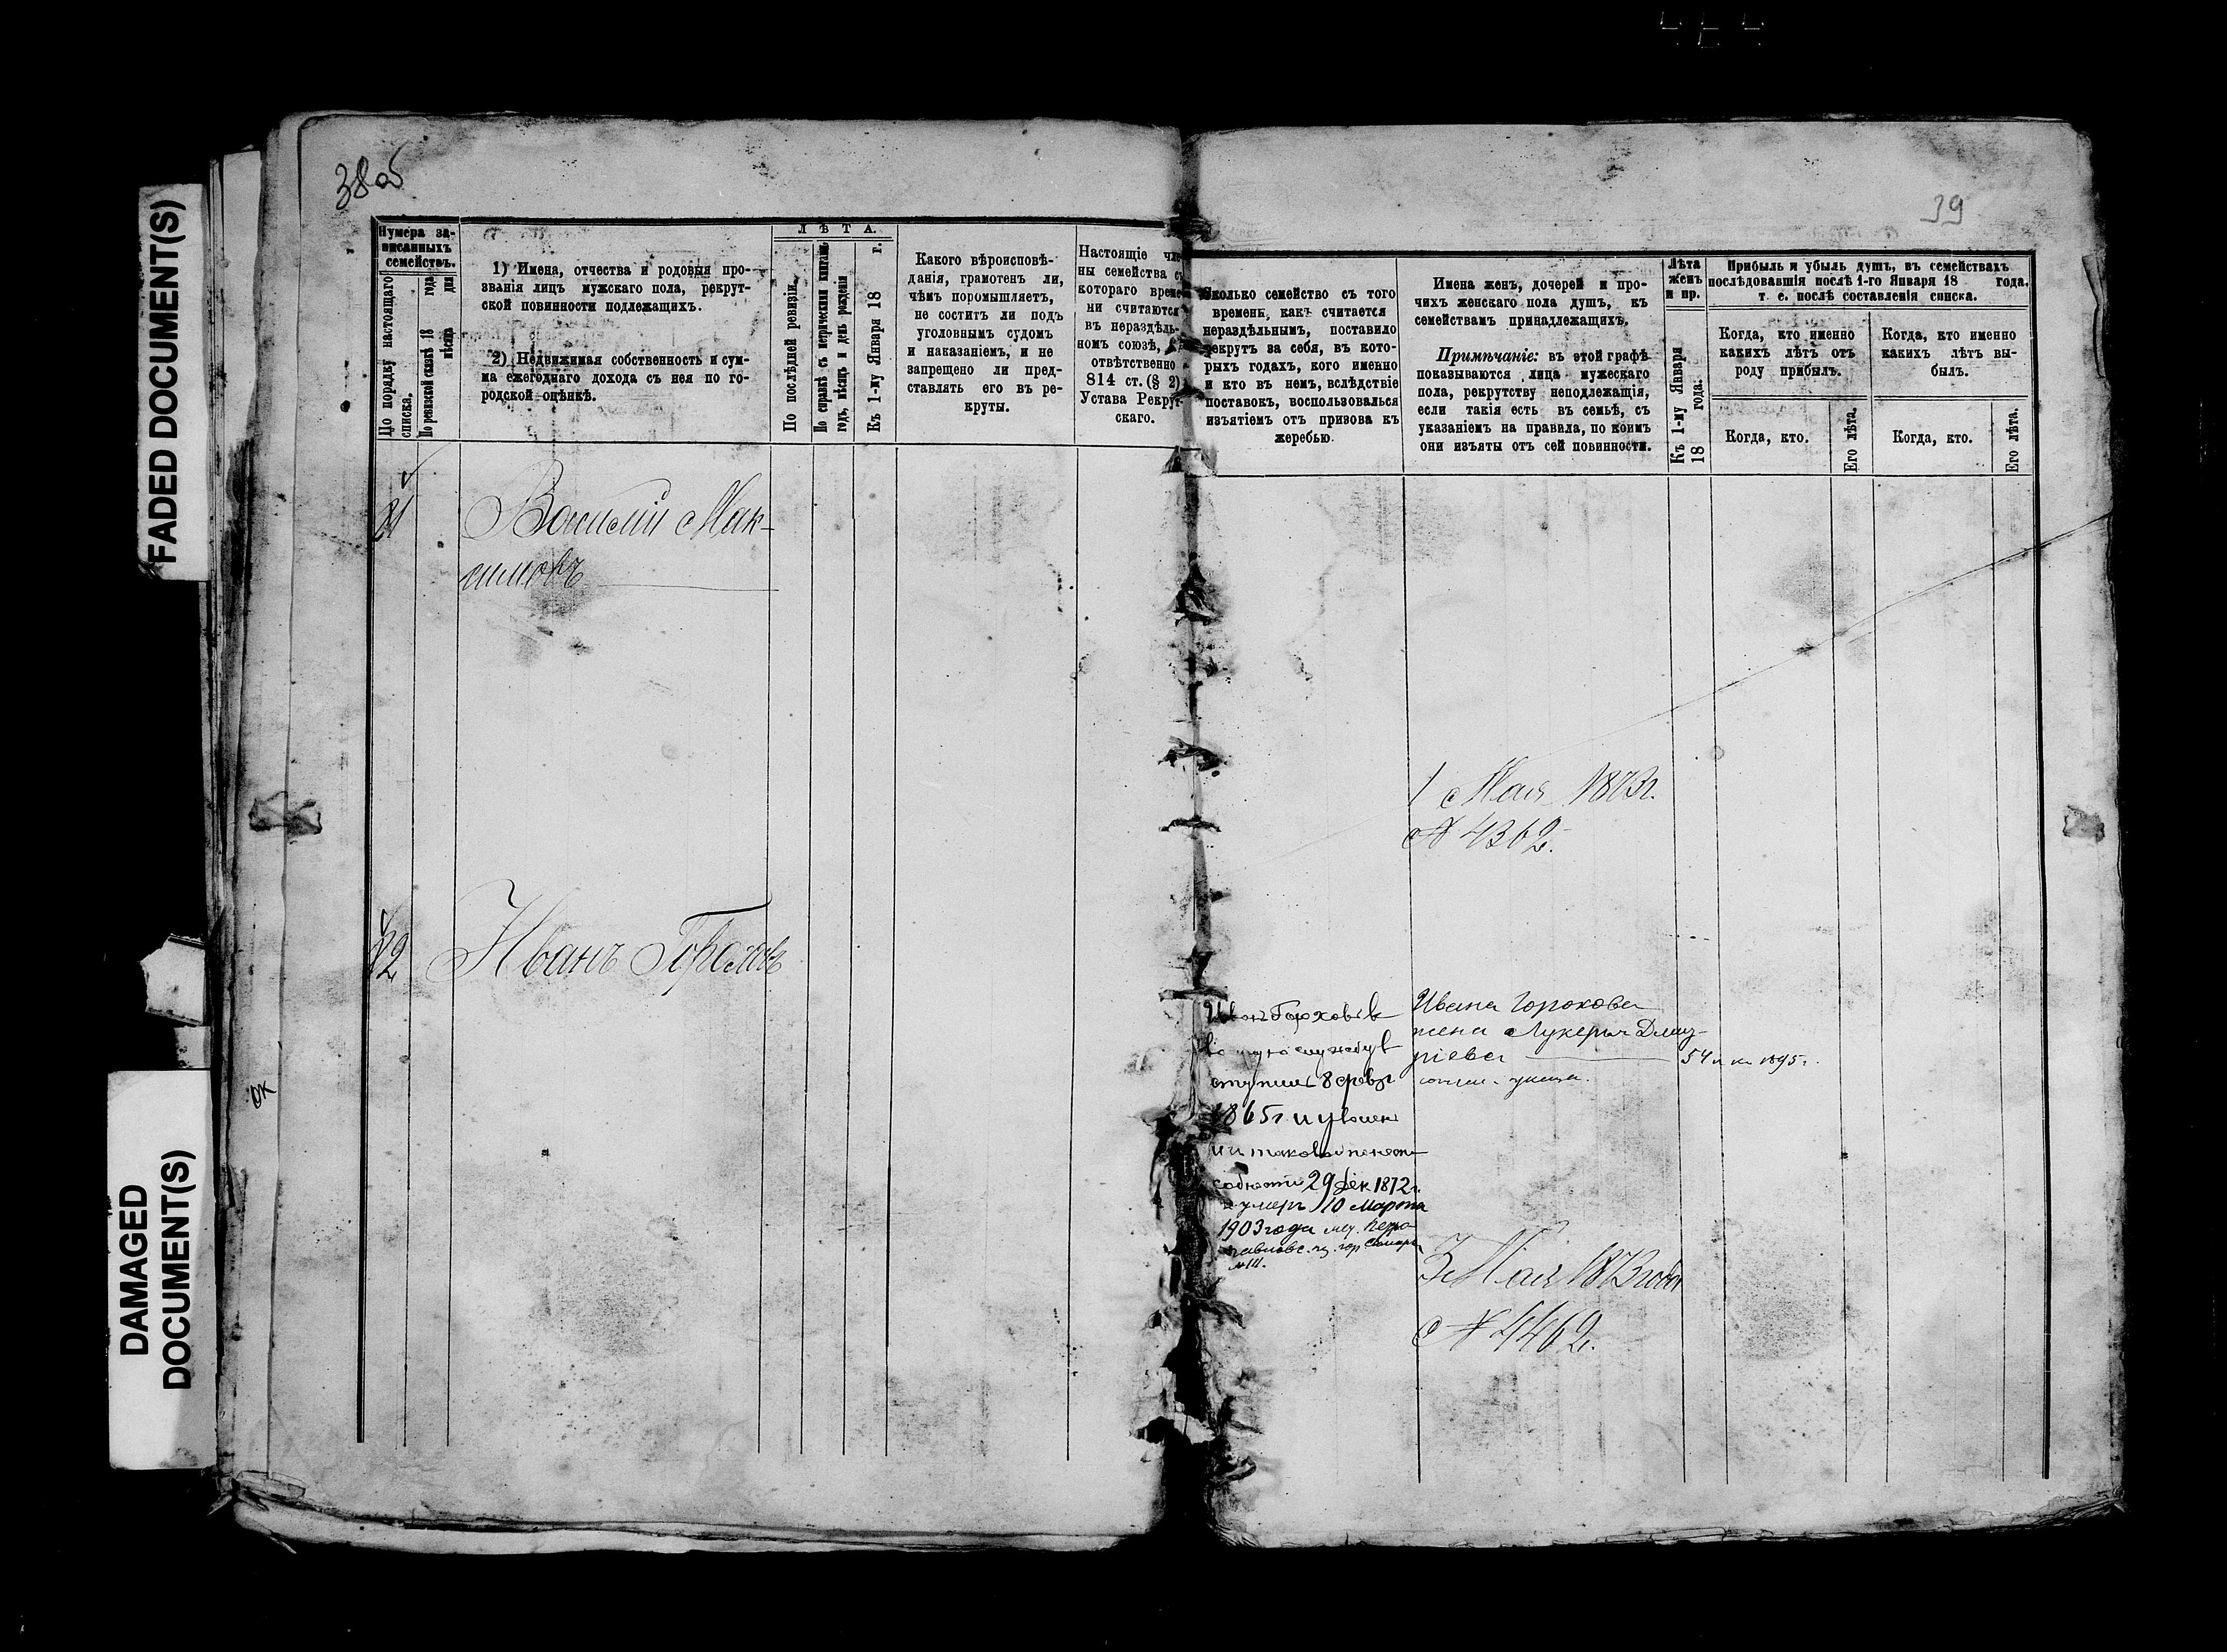 FADED DOCUMENT(S)
DAMAGED
DOCUMENT(S)
38об
Нумера за-
писанныхъ
семействъ.
По порядку настоящаго
списка.
По ревизской сказкѣ 18 года
мѣсяца дня
1) Имена, отчества и родовыя про-
званія лицъ мужскаго пола, рекрут-
ской повинности подлежащихъ.
2) Недвижимая собственность и сум-
ма ежегоднаго дохода съ нея по го-
родской оцѣнкѣ.
ЛѢТА.
По послѣдней ревизіи.
По справкѣ съ метрическими книгами
годъ, мѣсяцъ и день рожденія
Къ 1-му Января 18 г.
Какого вѣроисповѣ-
данія, грамотенъ ли,
чѣмъ поромышляетъ,
не соститъ ли подъ
уголовнымъ судомъ
и наказаніемъ, и не
запрещено ли пред-
ставлять его въ ре-
круты.
Настоящіе чле-
ны семейства съ
котораго време-
ни считаются
въ нераздѣль-
номъ союзѣ,
отвѣтственно
814 ст. (§ 2)
Устава Рекрут-
скаго.
Василій Мак-
симовъ
Иванъ Гороховъ
39
Сколько семейство съ того
времени, какъ считается
нераздѣльнымъ, поставило
рекрутъ за себя, въ кото-
рыхъ годахъ, кого именно
и кто въ немъ, вслѣдствіе
поставокъ, воспользовалься
изъятіемъ отъ призова къ
жеребью.
Имена женъ, дочерей и про-
чихъ женскаго пола душъ, къ
семействамъ принадлежащихъ.
Примѣчаніе: въ этой графѣ
показываются лица мужескаго
пола, рекрутству неподлежащія,
если такія есть въ семьѣ, съ
указаніемъ на правила, по коимъ
они изъяты отъ сей повинности.
Лѣта
женъ
и пр.
Къ 1-му Января
18 года.
Прибыль и убыль душъ, въ семействахъ
послѣдовавшія послѣ 1-го Января 18 года.
т. е. послѣ составленія списка.
Когда, кто именно
какихъ лѣтъ отъ
роду прибылъ.
Когда, кто именно
какихъ лѣтъ вы-
былъ.
Когда, кто.
Его лѣта.
Когда, кто.
Его лѣта.
1 Мая 1873г.
№ 4362.
Иванъ Гороховъ въ
службу в
ступилъ 8 февр
1865г. и уволен
29 Дек 1872г.
умеръ 10 Марта
1903 года
№ 111.
Ивана Горохова
жена Лукерья Дмит-
ріева 54 л. къ 1895г.
3 Мая 1873 года
№ 4462.